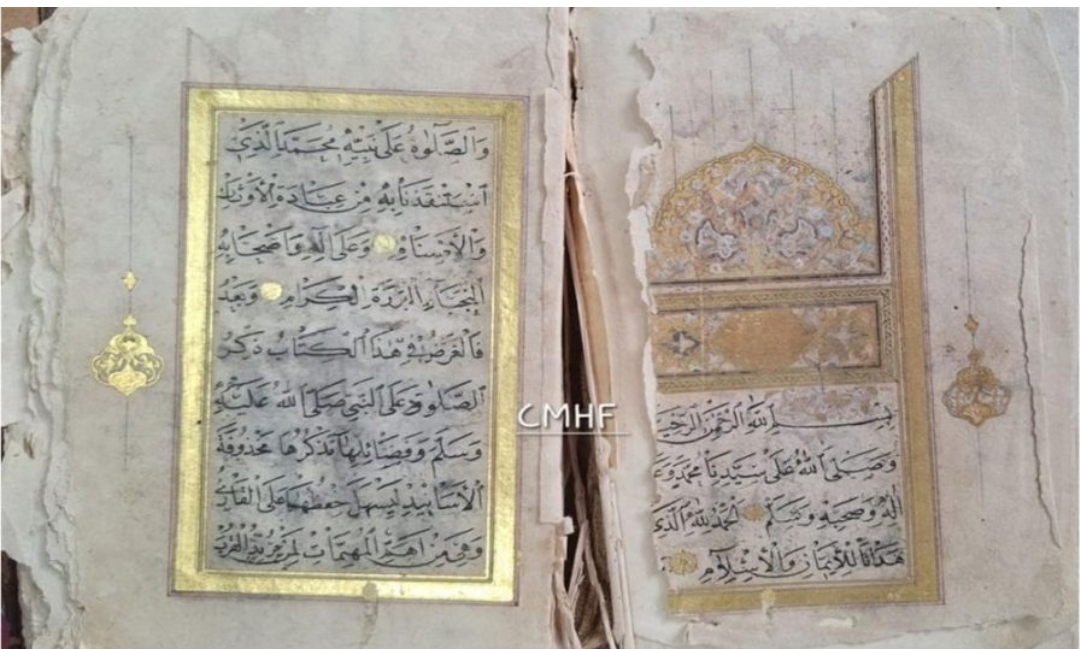 بسم الله الرحمن الرحيم
وَصَلَّى اللهُ عَلَى سَيِّدِنَا مُحَمَّدٍ وَعَ
آلِهِ وَصَحْبِهِ وَسَلَّمَ الْحَمْدُ لِلّٰهِ الَّذِي
هَدَانَا لِلْأِيمَانِ وَالْأِسْلَامِ
وَالصَّلٰوةُ عَلَى نَبِيِّهِ مُحَمَّدٍ الَّذِي
اسْتَنْقَذَنَا بِهِ مِنْ عِبَادَةِ الْأَوْثَانِ
وَالْأَصْنَامِ وَعَلَى آلِهِ وَأَصْحَابِهِ
النُّجَبَاءِ الْبَرَرَةِ الْكِرَامِ وَبَعْدُ
فَالْغَرَضُ فِي هٰذَا الْكِتَابِ ذِكْرُ
الصَّلٰوةِ عَلَى النَّبِيِّ صَلَّى اللهُ عَلَيْهِ
وَسَلَّمَ وَفَضَائِلِهَا نَذْكُرُهَا مَحْذُوفَةَ
الْأَسَانِيدِ لِيَسْهُلَ حِفْظُهَا عَلَى الْقَارِئِ
وَهِيَ مِنْ أَهَمِّ الْمُهِمَّاتِ لِمَنْ يُرِيدُ الْقُرْبَ
CMHF